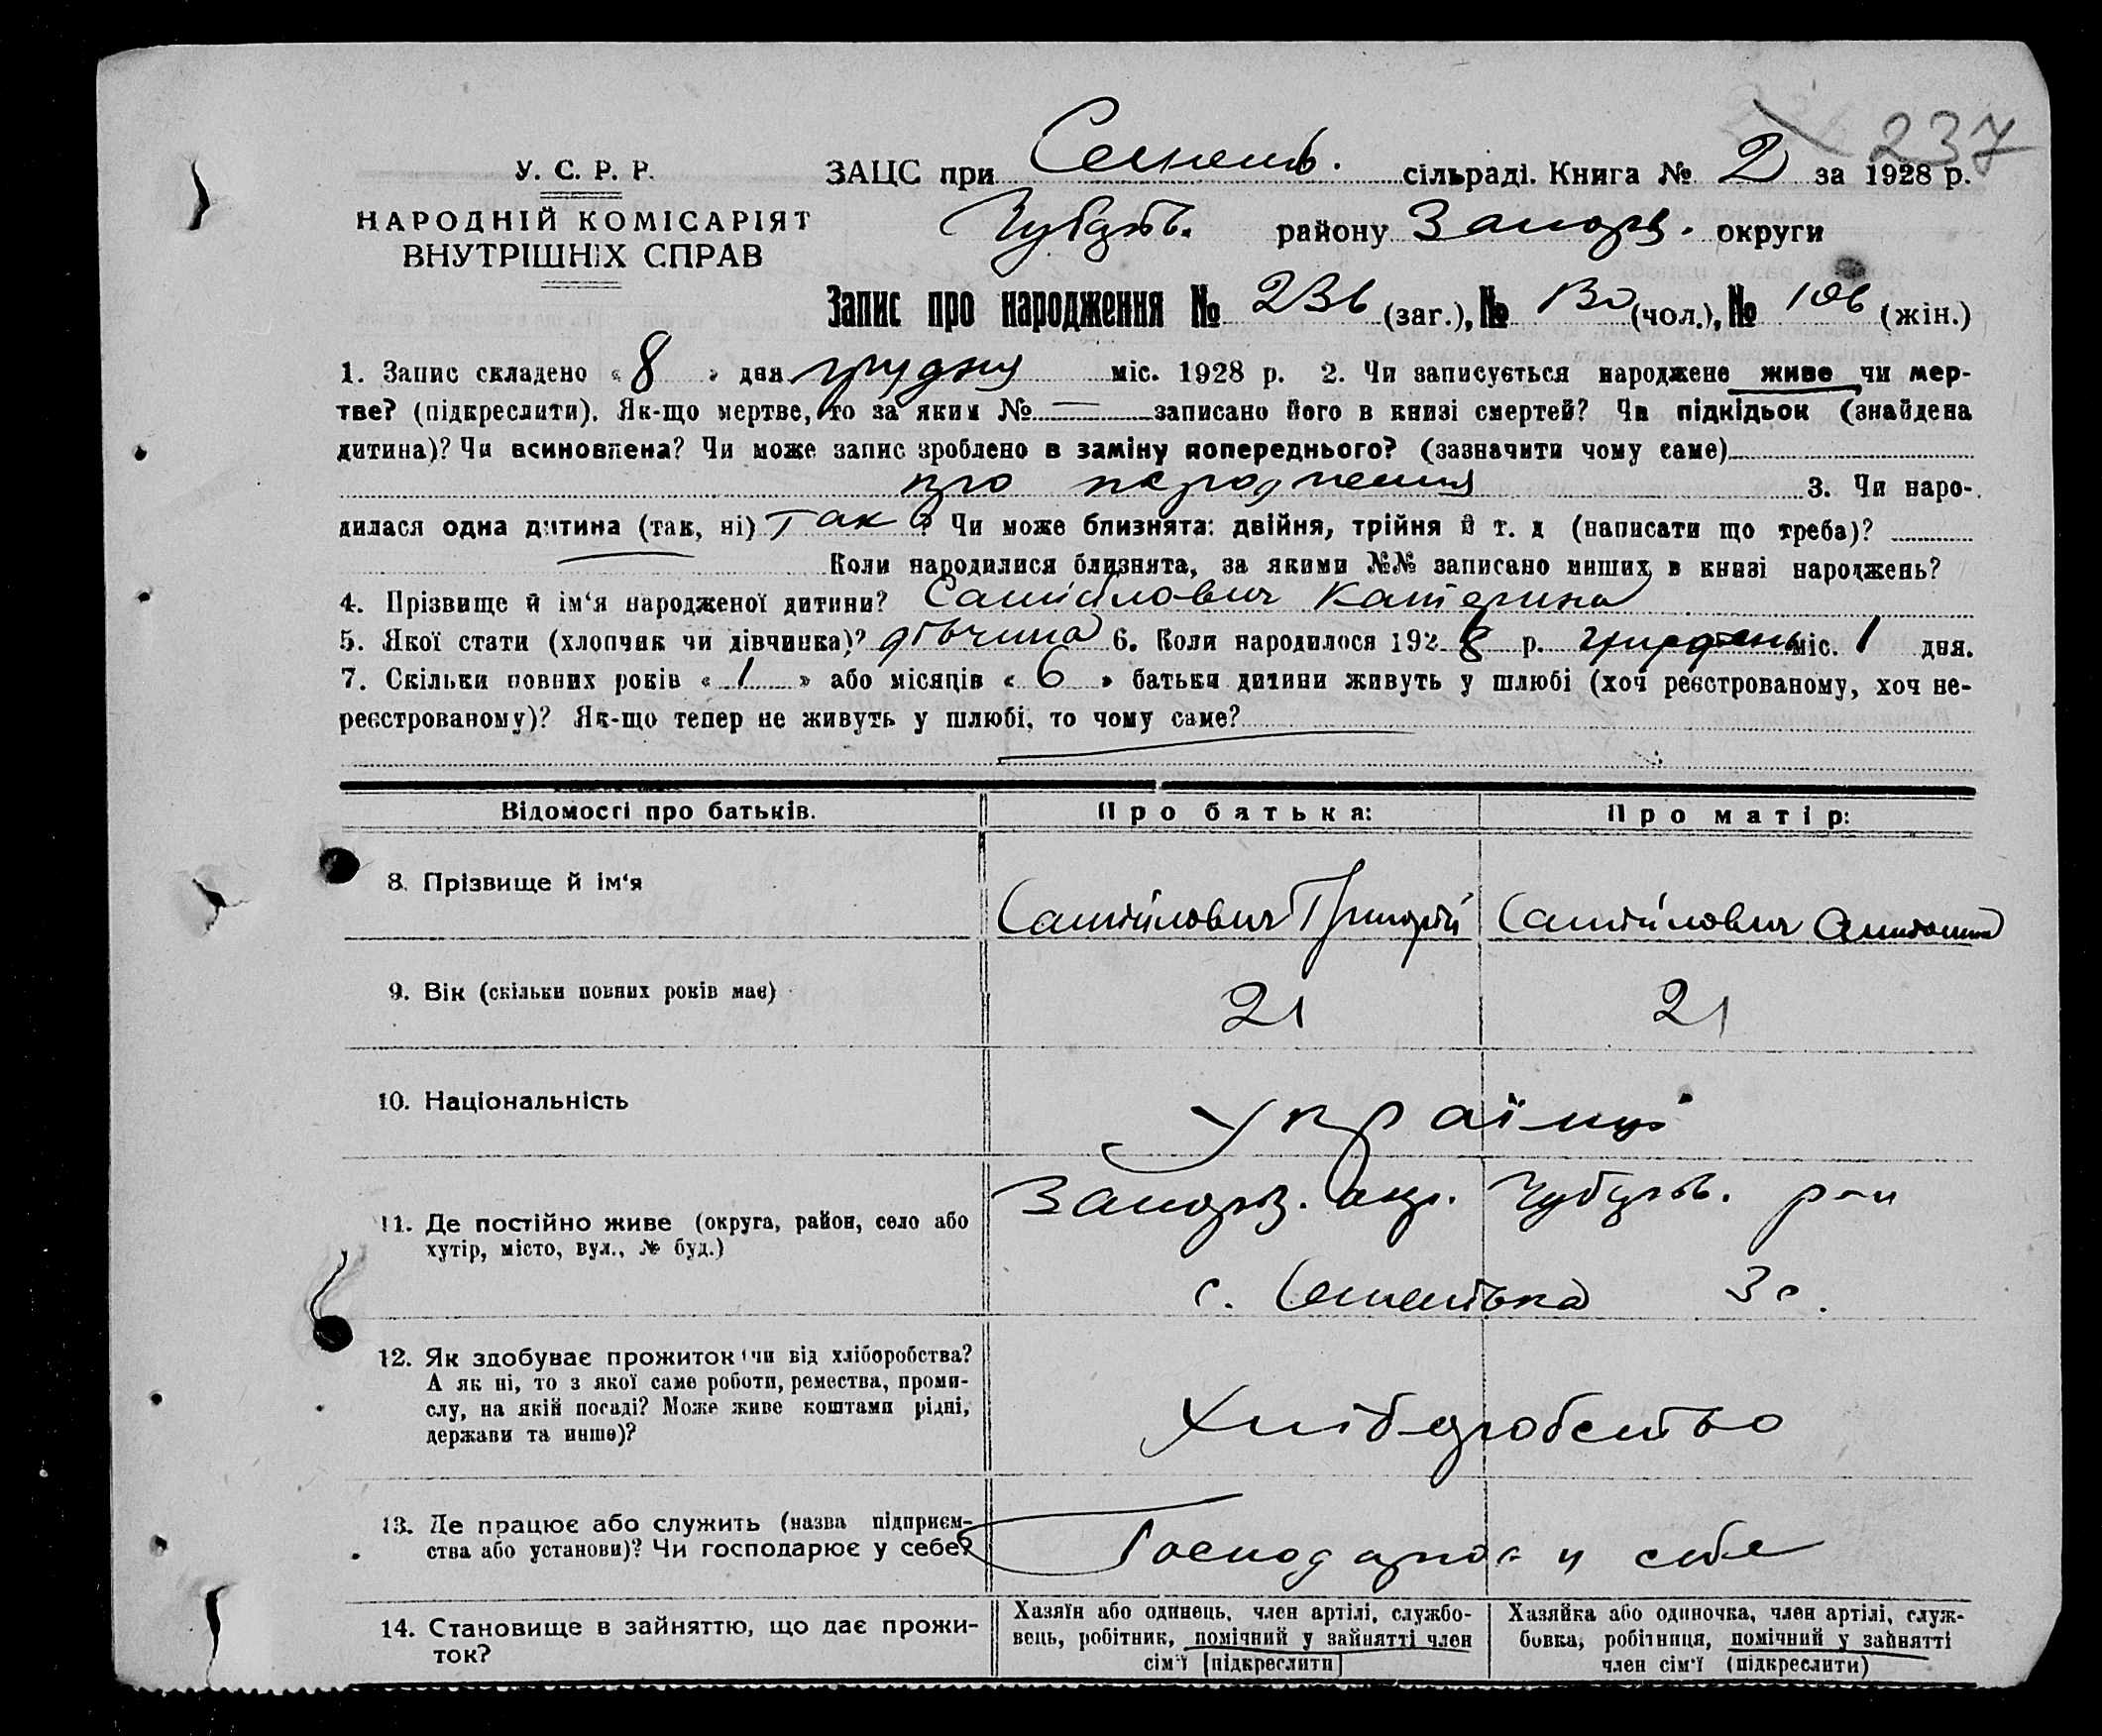 237
У. С. Р. Р.
НАРОДНІЙ КОМІСАРІЯТ
ВНУТРІШНІХ СПРАВ
ЗАЦС при Семенів. сільраді. Книга № 2 за 1928 р.
Чубарів. району Запоріз. округи
Запис про народження № 236 (заг.), № 130 (чол.), № 106 (жін.)
1. Запис складено « 8 » дня грудня міс. 1928 р. 2. Чи записується народжене живе чи мер-
тве? (підкреслити). Як-що мертве, то за яким № — записано його в книзі смертей? Чи підкідьок (знайдена
дитина)? Чи всиновлена? Чи може запис зроблено в заміну попереднього? (зазначити чому саме)
про народження 3. Чи наро-
дилася одна дитина (так, ні) так ? Чи може близнята: двійня, трійня й т. д (написати що треба)?
Коли народилися близнята, за якими №№ записано инших в книзі народжень?
4. Прізвище й ім‘я народженої дитини? Самійлович Катерина
5. Якої стати (хлопчик чи дівчинка)? дівчина 6. Коли народилося 1928 р. грудень міс. 1 дня.
7. Скільки повних років « 1 » або місяців « 6 » батьки дитини живуть у шлюбі (хоч реєстрованому, хоч не-
реєстрованому)? Як-що тепер не живуть у шлюбі, то чому саме?
Відомості про батьків. Про батька: Про матір:
8. Прізвище й ім‘я Самійлович Григорій Самійлович
9. Вік (скільки повних років має) 21 21
10. Національність Українці
11. Де постійно живе (округа, район, село або
хутір, місто, вул., № буд.)
Запоріз. окр. Чубарів. р-н
с. Семенівка
12. Як здобуває прожиток чи від хліборобства?
А як ні, то з якої саме роботи, ремества, проми-
слу, на якій посаді? Може живе коштами рідні,
держави та инше)?
Хліборобство
13. Де працює або служить (назва підприєм-
ства або установи)? Чи господарює у себе?
Господарює у себе
14. Становище в зайняттю, що дає прожи-
ток?
Хазяїн або одинець, член артілі, службо-
вець, робітник, помічний у зайнятті член
сім‘ї [підкреслити]
Хазяйка або одиночка, член артілі, служ-
бовка, робітниця, помічний у зайнятті
член сім‘ї (підкреслити)